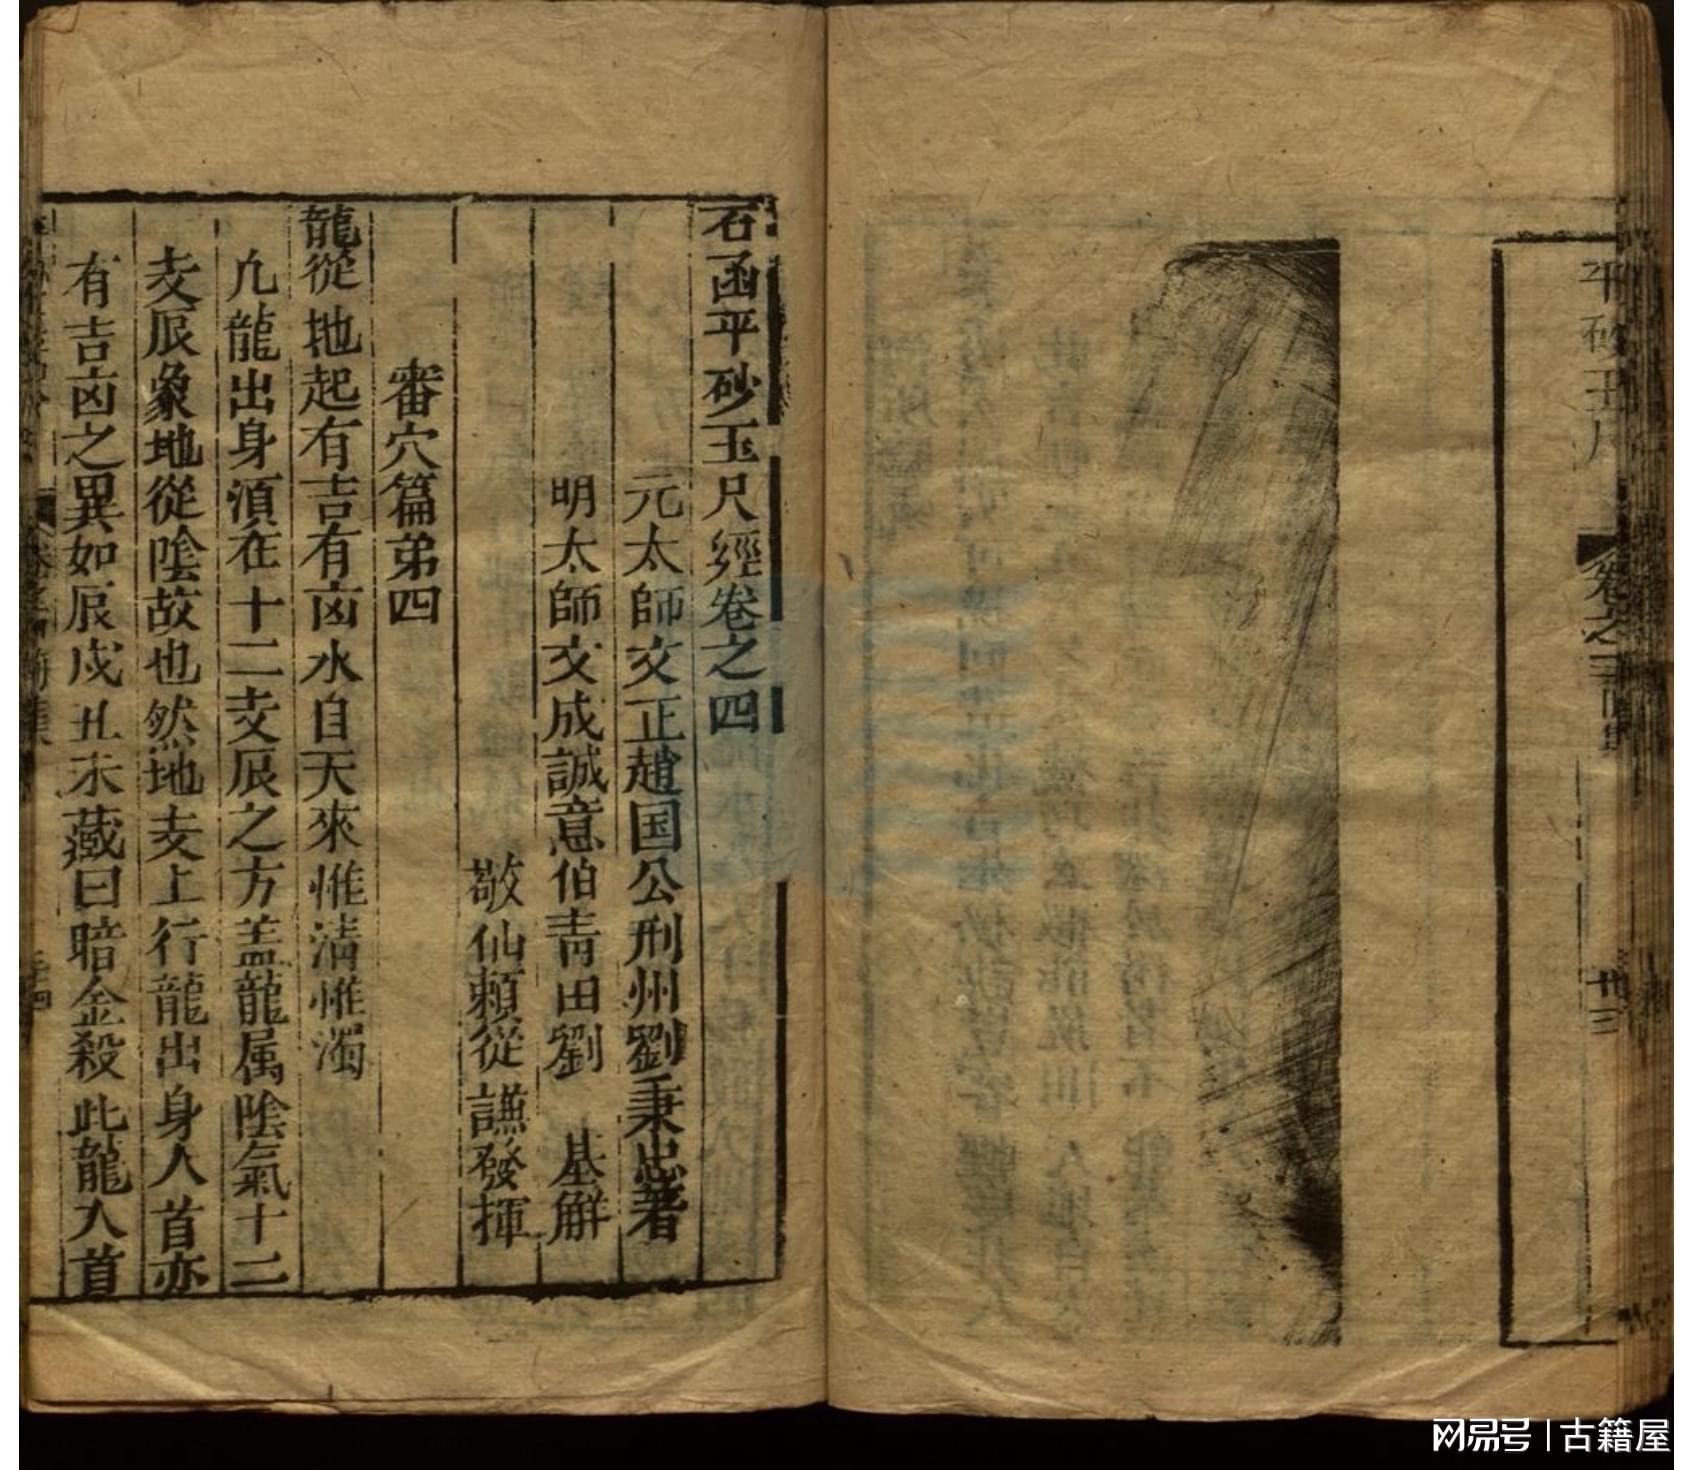 平砂玉尺
卷之三
廿三
石函平砂玉尺經卷之四
元太師文正趙国公刑州劉秉忠著
明太師文成誠意伯青田劉 基解
敬仙賴從謙發揮
審穴篇弟四
龍從地起有吉有凶水自天來惟清惟濁
凢龍出身湏在十二支辰之方盖龍属陰氣十二
支辰象地從陰故也然地支上行龍出身入首亦
有吉凶之異如辰戌丑未藏曰暗金殺此龍入首
网易号 | 古籍屋